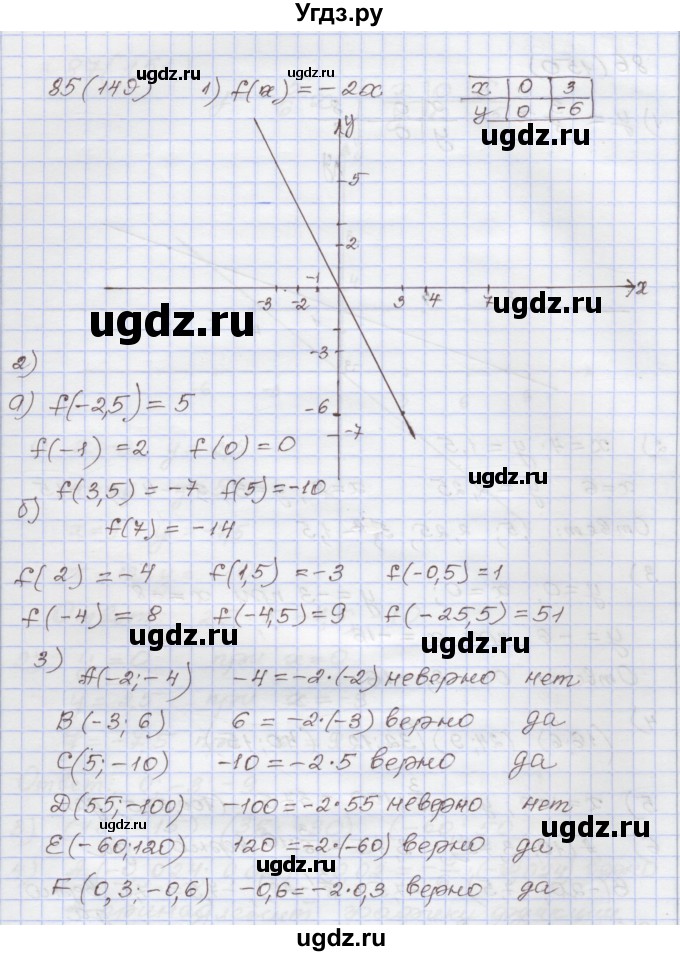 Угдз.ру
85(149) 1) f(x) = -2x
x 0 3
y 0 -6
y
5
2
-3 -2 -1 3 4 7 x
-3
-6
-7
ugdz.ru
ugdz.ru
ugdz.ru
ugdz.ru
ugdz.ru
2)
а) f(-2,5) = 5
f(-1) = 2 f(0) = 0
ugdz.ru
f(3,5) = -7 f(5) = -10
б)
f(7) = -14
ugdz.ru
f(2) = -4 f(1,5) = -3 f(-0,5) = 1
f(-4) = 8 f(-4,5) = 9 f(-25,5) = 51
ugdz.ru
ugdz.ru
3)
A(-2; -4) -4 = -2·(-2) неверно нет
B(-3; 6) 6 = -2·(-3) верно да
C(5; -10) -10 = -2·5 верно да
D(55; -100) -100 = -2·55 неверно нет
ugdz.ru
ugdz.ru
E(-60; 120) 120 = -2·(-60) верно да
ugdz.ru
F(0,3; -0,6) -0,6 = -2·0,3 верно да
ugdz.ru